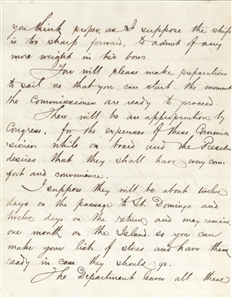 you think proper, as I suppose the ship
is too sharp forward, to admit of any
more weight in her bows.
You will please make preparations
to sail so that you can start the moment
the Commissioners are ready to proceed
There will be an appropriation by
Congress, for the expenses of these Commis-
sioners while on board and the President
desires that they shall have every com-
fort and convenience.
I suppose they will be about twelve
days on the passage to St. Domingo and
twelve days on the return, and may remain
one month on the Island. so you can
make your list of stores and have them
ready in case they should go.
The Department leaves all these